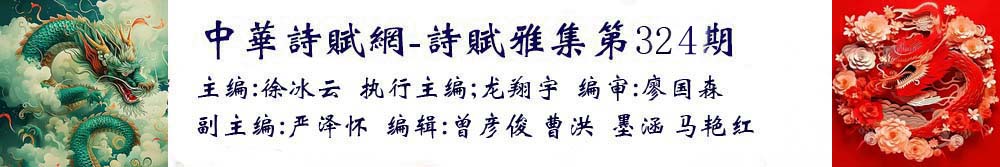 中華詩賦網-詩賦雅集第324期
主编:徐冰云 执行主编;龙翔宇 编审:廖国森
副主编:严泽怀 编辑:曾彦俊 曹洪 墨涵 马艳红